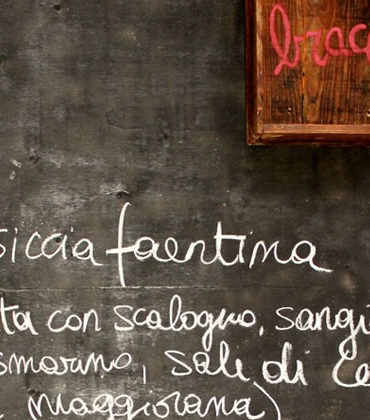 brac
siccia faentina
ta con scalogno, sangi
smarino, sale di Ce
maggiorana)